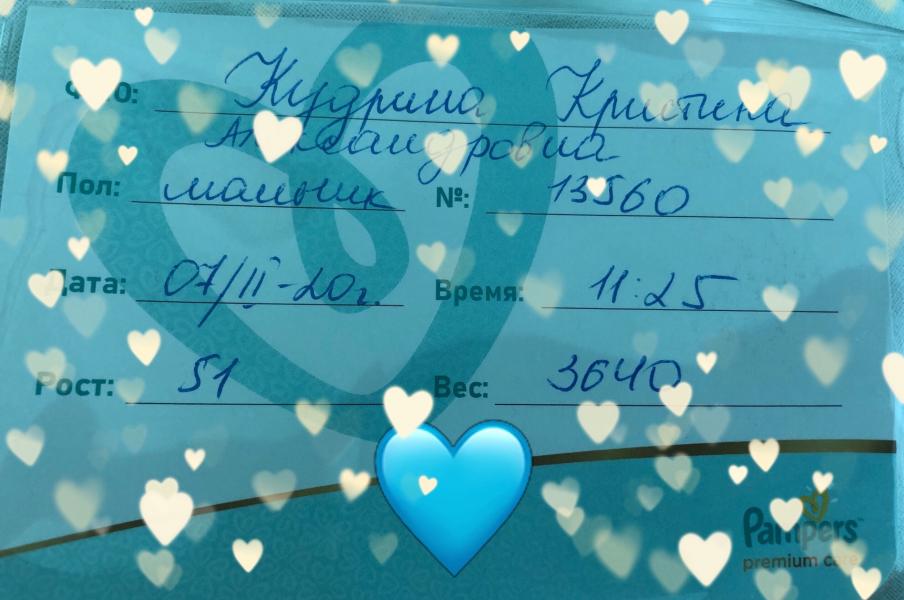 Ф.И.О: Кудрина Кристина
Александровна
Пол: мальчик №: 13560
Дата: 07/II-20г. Время: 11:25
Рост: 51 Вес: 3640
Pampers™
premium care